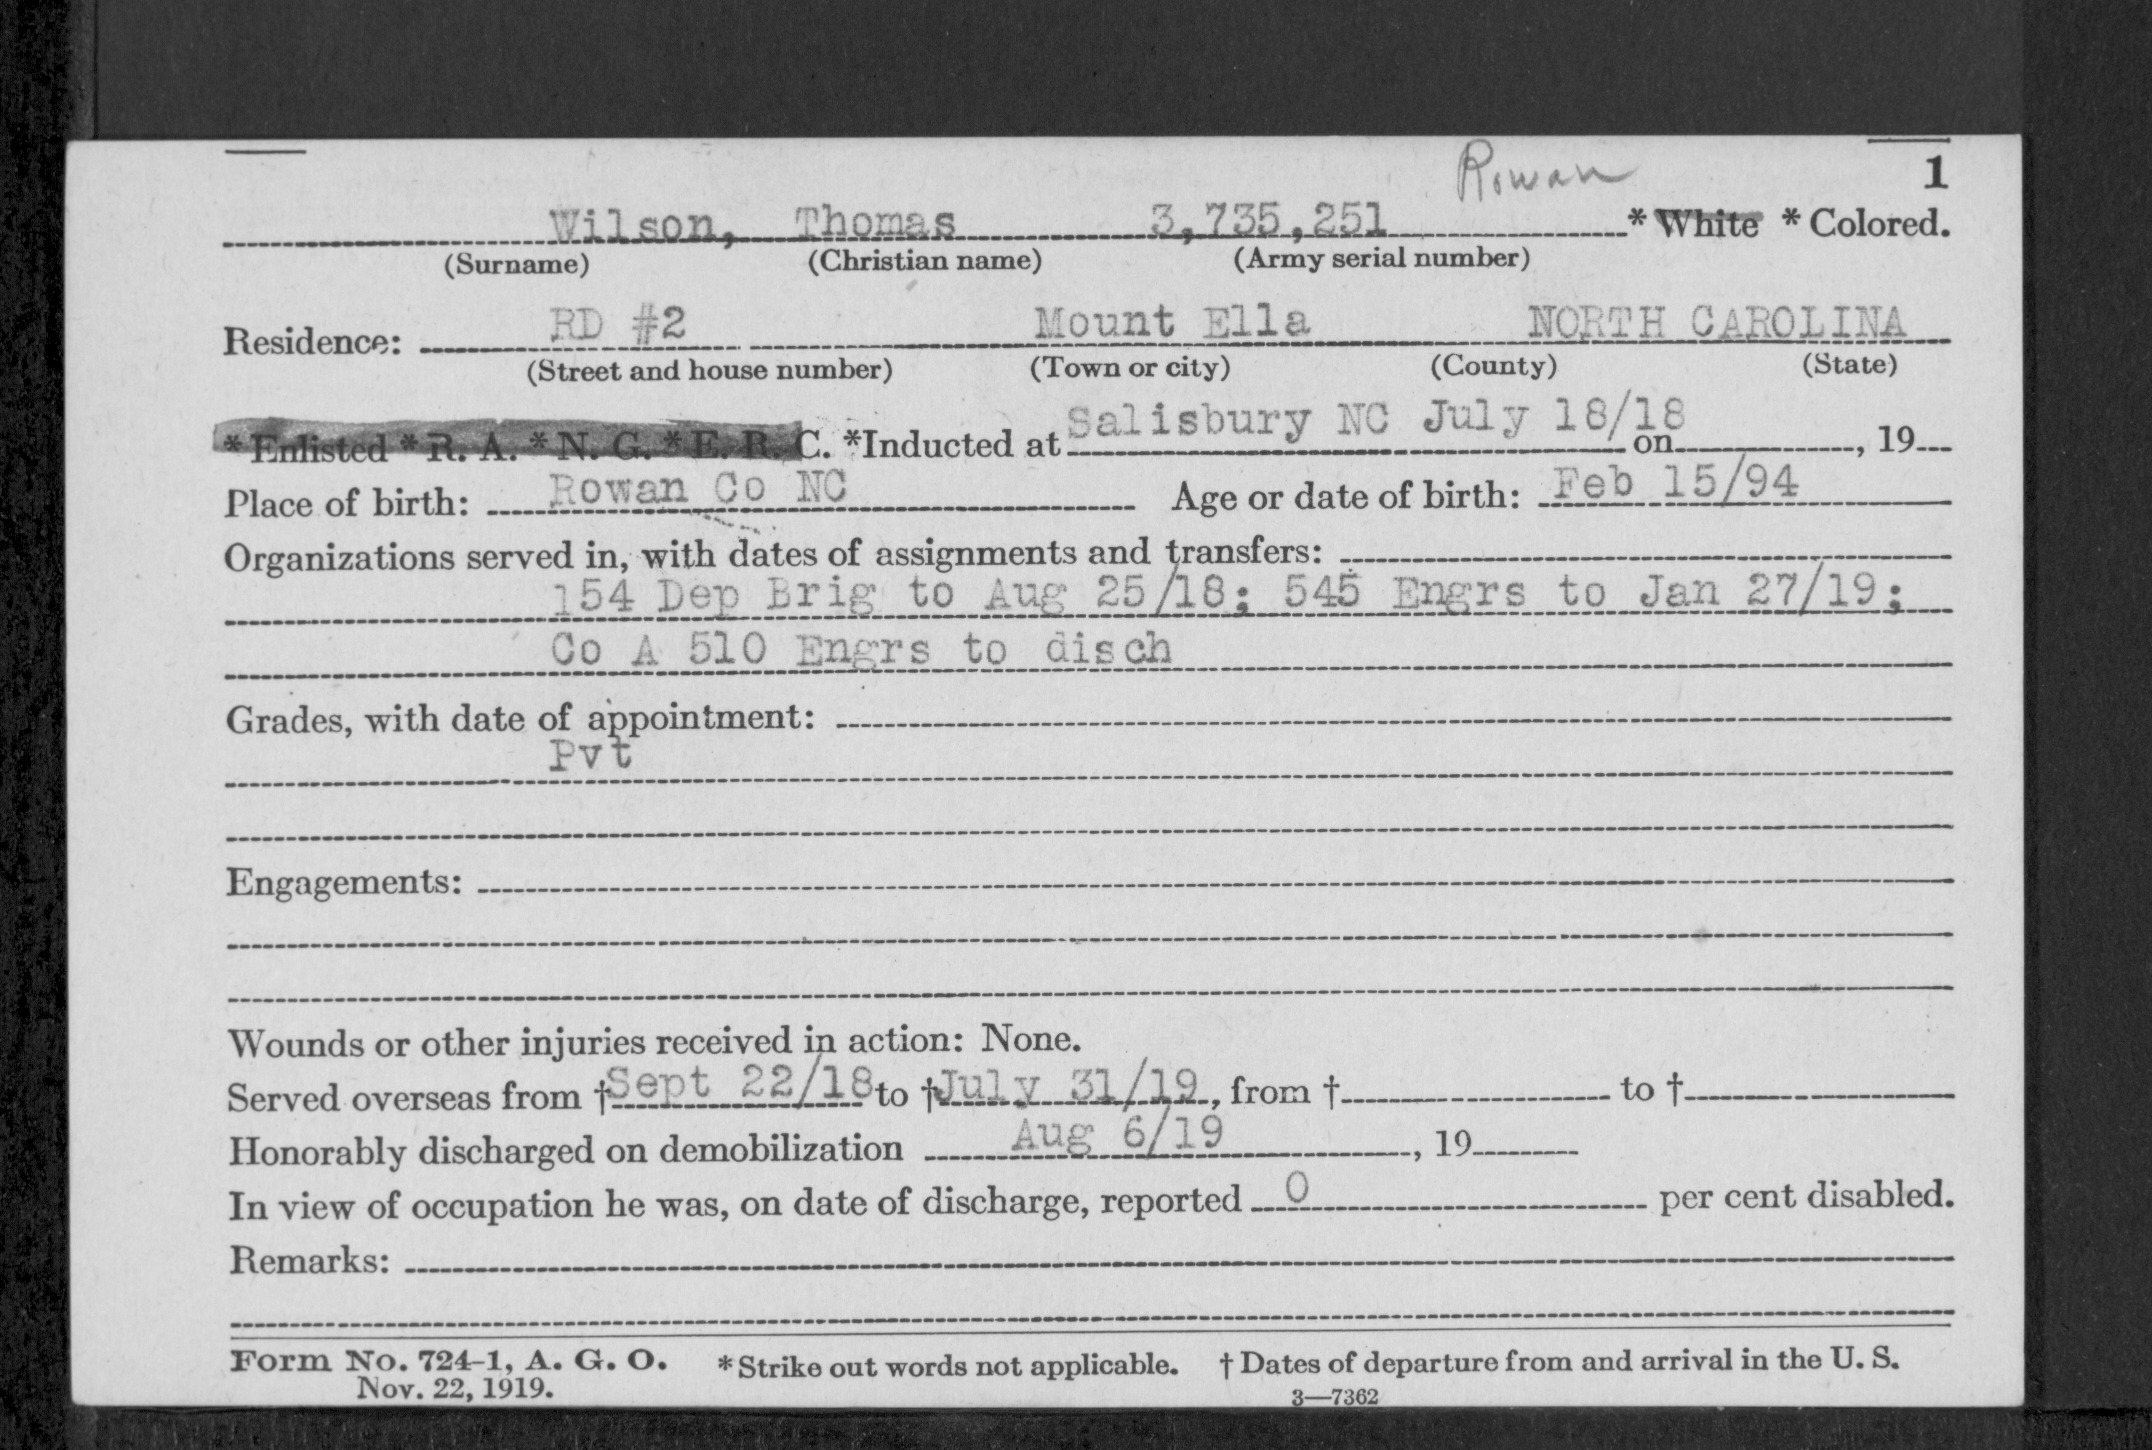 Rowan
1
Wilson, Thomas 3,735,251 * White * Colored.
(Surname) (Christian name) (Army serial number)
Residence: RD #2 Mount Ella NORTH CAROLINA
(Street and house number) (Town or city) (County) (State)
* Enlisted * R. A. * N. G. * E. R. C. *Inducted at Salisbury NC July 18/18 on , 19
Place of birth: Rowan Co NC Age or date of birth: Feb 15/94
Organizations served in, with dates of assignments and transfers:
154 Dep Brig to Aug 25/18; 545 Engrs to Jan 27/19;
Co A 510 Engrs to disch
Grades, with date of appointment:
Pvt
Engagements:
Wounds or other injuries received in action: None.
Served overseas from † Sept 22/18 to † July 31/19, from † to †
Honorably discharged on demobilization Aug 6/19, 19
In view of occupation he was, on date of discharge, reported 0 per cent disabled.
Remarks:
Form No. 724-1, A. G. O. * Strike out words not applicable. † Dates of departure from and arrival in the U. S.
Nov. 22, 1919. 3—7362